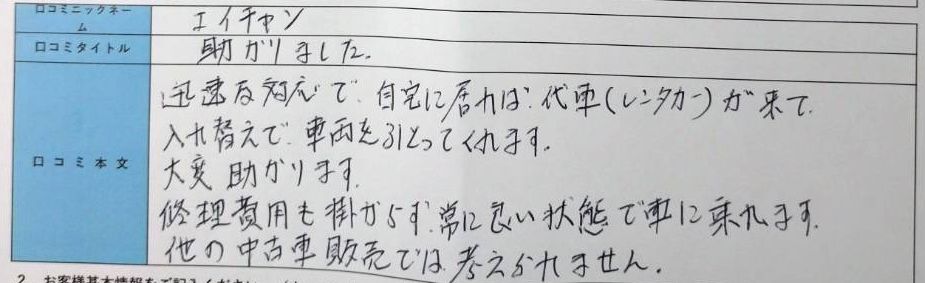 口コミニックネーム エイチャン
口コミタイトル 助かりました.
口コミ本文
迅速な対応で、自宅に居れば、代車(レンタカー)が来て、
入れ替えで、車両を引とってくれます。
大変助かります。
修理費用も掛からず、常に良い状態で車に乗れます。
他の中古車販売では、考えられません。
2. お客様基本情報をご記入ください